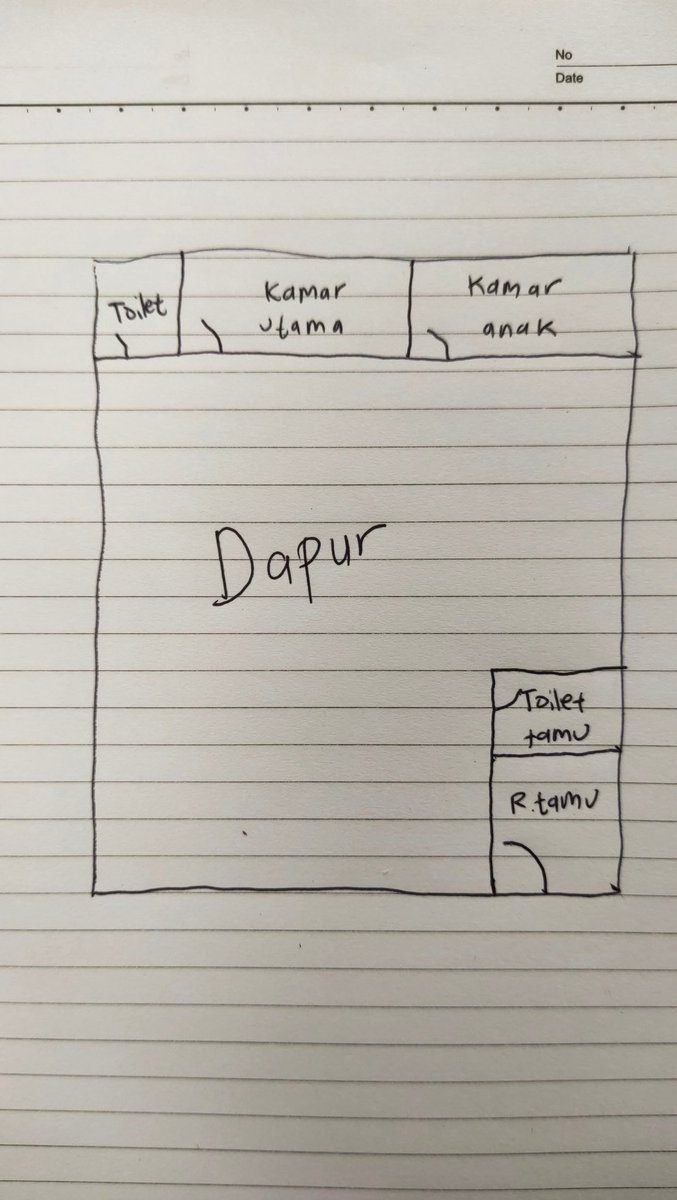 No
Date
Toilet
Kamar
utama
Kamar
anak
Dapur
Toilet
tamu
R.tamu